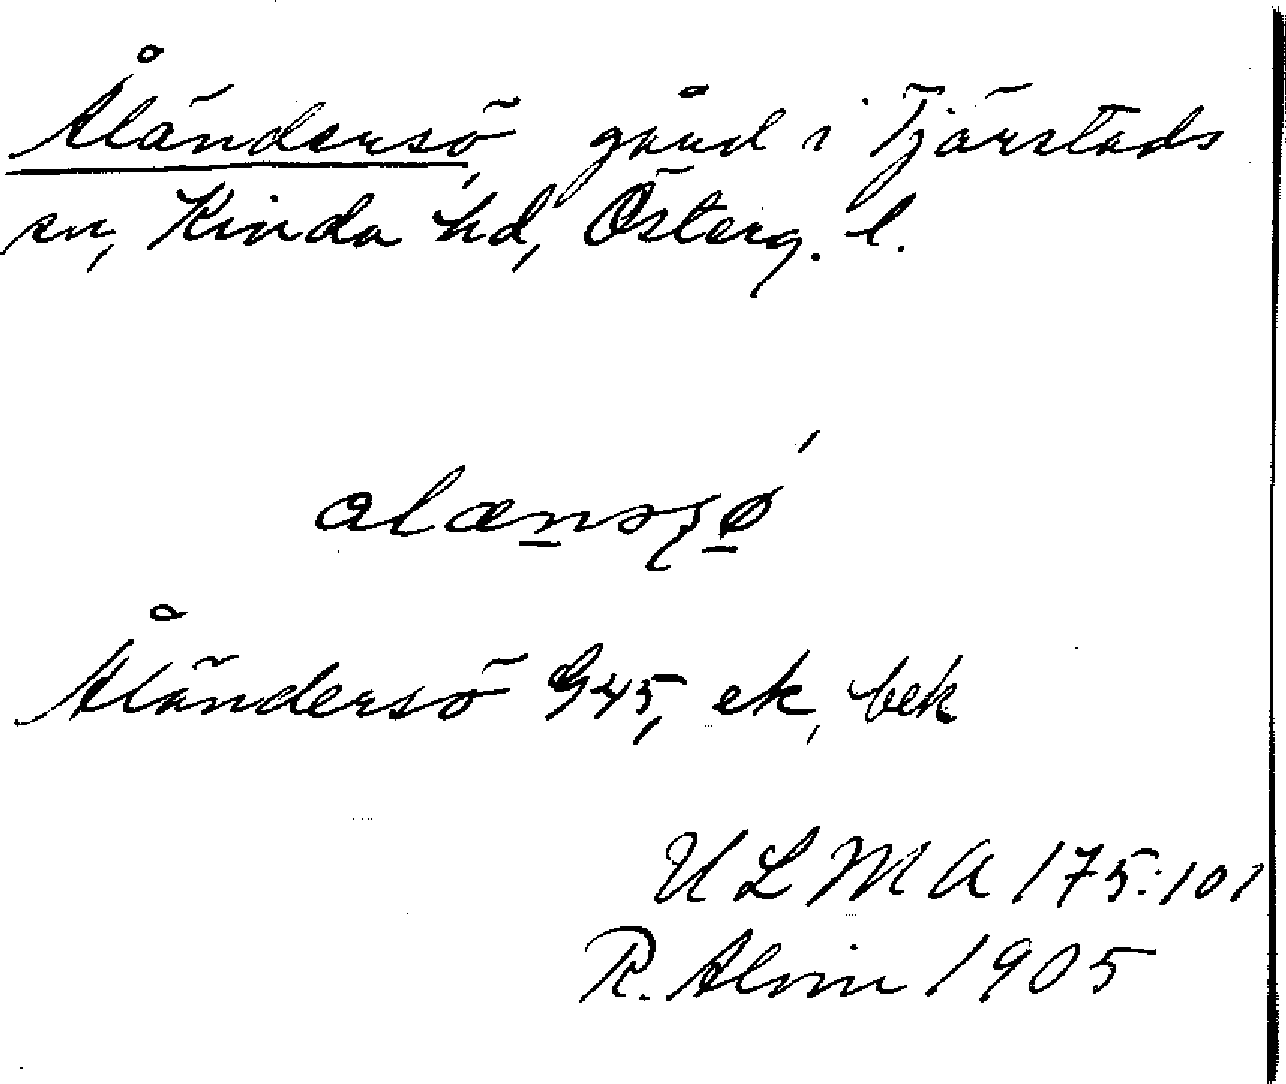 Åländersö, gård i Tjärstads
sn, Kinda hd, Österg. l.
alænsjø´
Åländersö G45, ek, bek
ULMA 175:101
R. Alvin 1905